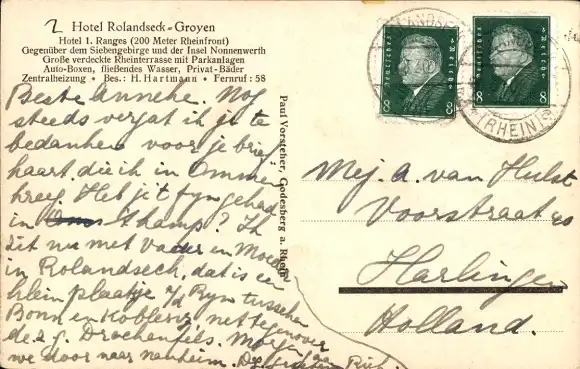 2
Hotel Rolandseck-Groyen
Hotel 1. Ranges (200 Meter Rheinfront)
Gegenüber dem Siebengebirge und der Insel Nonnenwerth
Große verdeckte Rheinterasse mit Parkanlagen
Auto-Boxen, fließendes Wasser, Privat-Bäder
Zentralheizung • Bes.: H. Hartmann • Fernruf: 58
Beste Anneke. Nog
steeds vergat ik je te
bedanken voor je brief
kaart die ik in Ommen
kreeg. Heb je 't fyn gehad
in 't kamp? Ik
zit nu met Vader en Moeder
in Rolandseck, dat is een
klein plaatsje a/d Ryn tusschen
Bonn en Koblenz net tegenover
de z.g. Drachenfels. Morgen gaan
we door naar Nauheim.
Paul Vorsteher, Godesberg a. Rhein
Deutsches Reich
8 8
Deutsches Reich
8 8
(RHEINL)
Mej. A. van Hulst
Voorstraat 20
Harlingen
Holland.